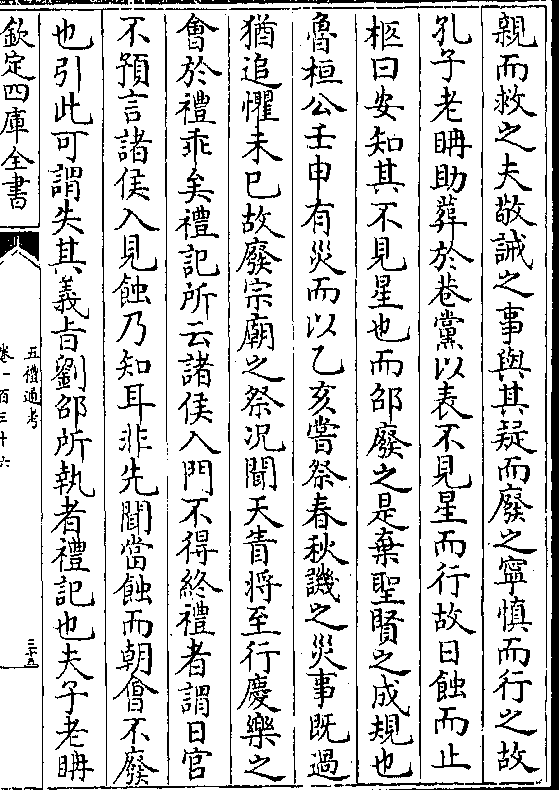 親而救之夫敬誡之事與其疑而廢之寧慎而行之故
孔子老聃助葬於巷黨以表不見星而行故日蝕而止
柩曰安知其不見星也而邵廢之是棄聖賢之成規也
魯桓公壬申有災而以乙亥嘗祭春秋譏之災事既過
猶追懼未已故廢宗廟之祭况聞天眚将至行慶樂之
會於禮乖矣禮記所云諸侯入門不得終禮者謂日官
不預言諸侯入見蝕乃知耳非先聞當蝕而朝會不廢
也引此可謂失其義㫖劉邵所執者禮記也夫子老聃
欽定四庫全書
五禮通考
卷一百三十六
三十五